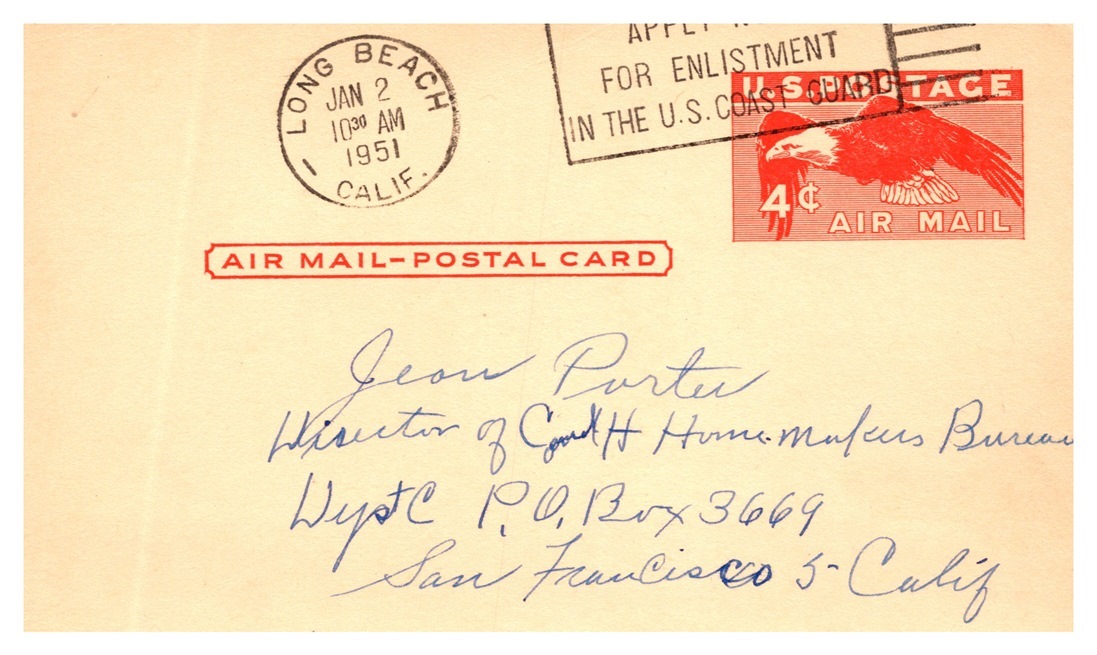 LONG BEACH
JAN 2
10³⁰ AM
1951
CALIF.
APPLY
FOR ENLISTMENT
IN THE U.S. COAST GUARD
U.S. POSTAGE
4¢
AIR MAIL
AIR MAIL-POSTAL CARD
Jean Porter
Director of C and H Homemakers Bureau
Dept C P.O. Box 3669
San Francisco 5 Calif